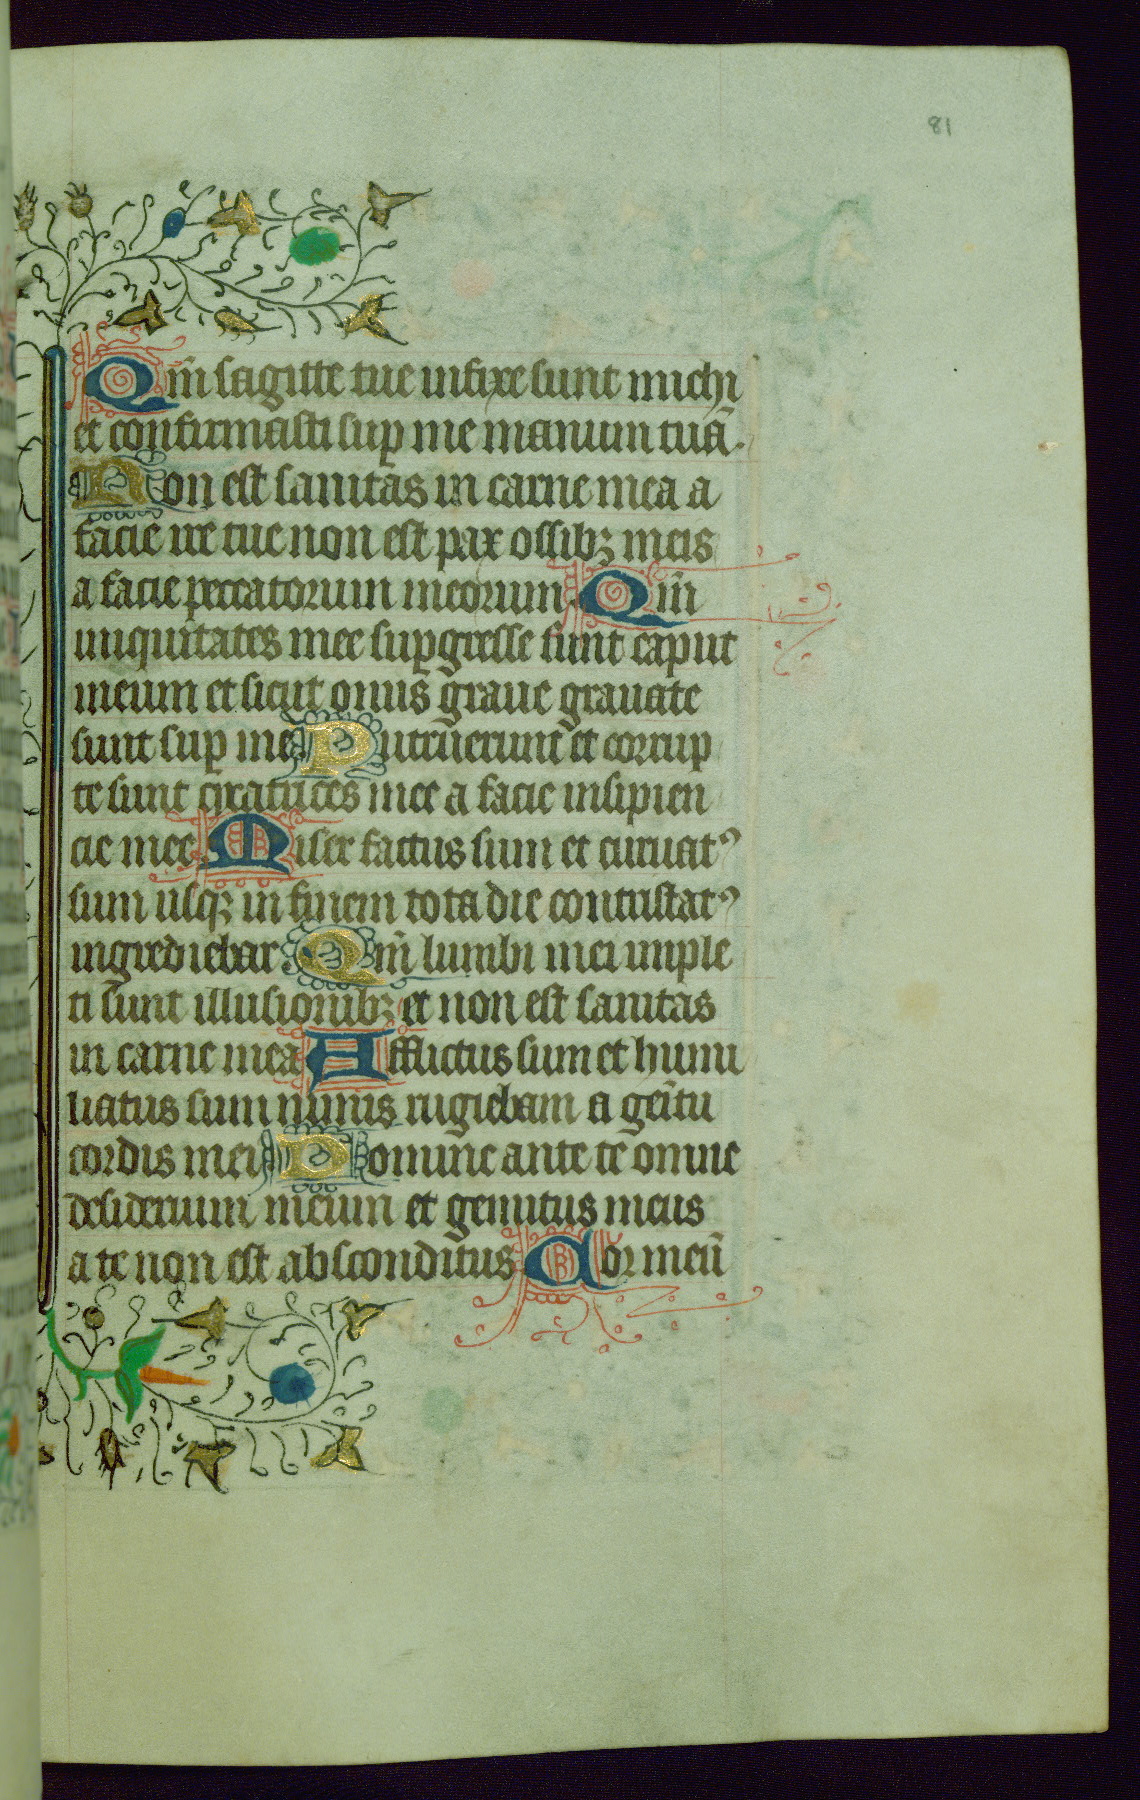 81
Qm̄ sagitte tue infixe sunt michi
et confirmasti sup me manum tuā.
Non est sanitas in carne mea a
facie ire tue non est pax ossibꝫ meis
a facie peccatorum meorum Qm̄
iniquitates mee supgresse sunt caput
meum et sicut onus graue grauate
sunt sup me Putruerunt et corrup
te sunt cicatrices mee a facie insipien
cie mee Miser factus sum et curuatꝰ
sum usqꝫ in finem tota die contristatꝰ
ingrediebar Qm̄ lumbi mei imple
ti sunt illusionibꝫ et non est sanitas
in carne mea Afflictus sum et humi
liatus sum nimis rugiebam a gemitu
cordis mei Domine ante te omne
desiderium meum et gemitus meus
a te non est absconditus Cor meū